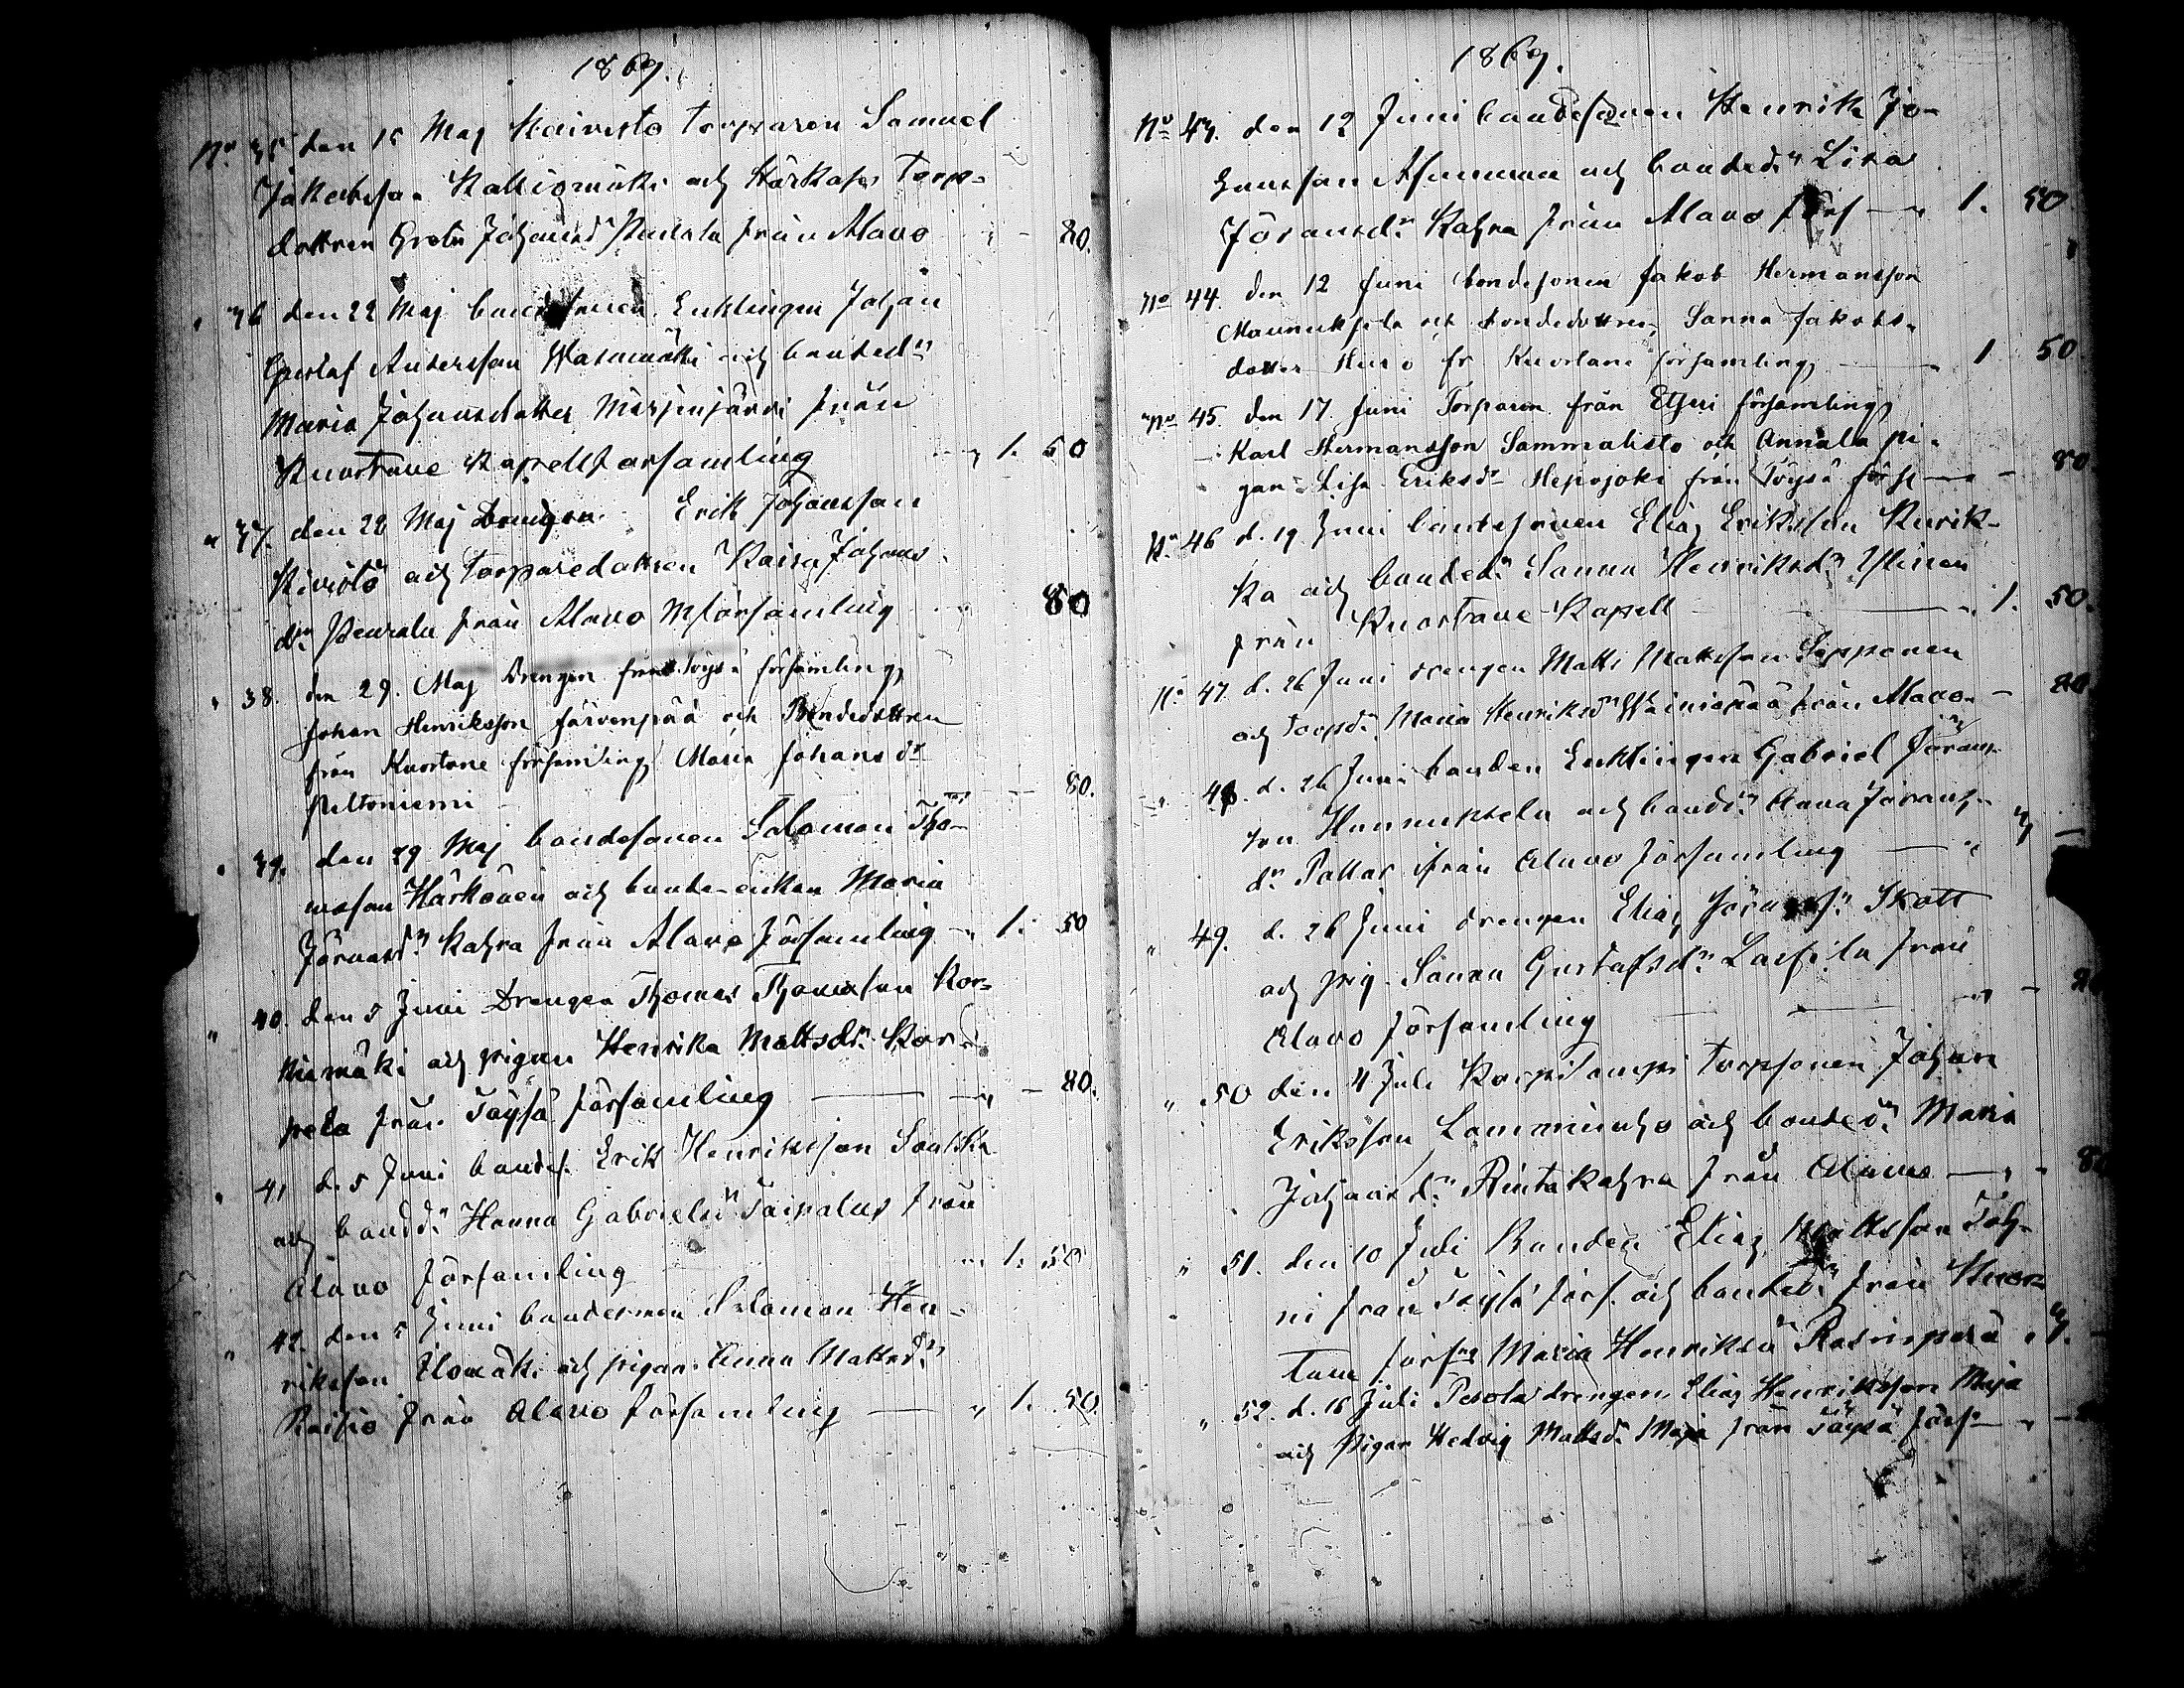 1869.
No 35 den 15 Maj Kaivisto Torparen Samuel
Jakobsson Kalliomäki och Härkäp Torp-
dottren Greta Johansdr Peurala från Alavo " - 80.
" 36 den 22 Maj Enklingen Johan
Gustaf Andersson och bonded:n
Maria Johansdotter Mäsjenjärvi från
Kuortane Kapellförsamling " 1. 50
" 37. den 22 Maj Drengen Erik Johansson
Kivistö och Torparedottren Kaisa Johans
dr. Peurala från Alavo Mförsamling " 80
" 38. den 29. Maj Drengen från Töysä församling,
Johan Henriksson Järvenpää och Bondedottren
från Kuortane församling Maria Johansdr
Peltoniemi - - 80.
" 39. den 29 Maj bondesonen Salomon Tho-
masson Härkönen och bonde-enkan Maria
Jöransdr Kahra från Alavo församling - " 1. 50
" 40. den 5 Juni Drengen Thomas Thomasson Kor-
kiamäki och pigan Henrika Mattsdr. Kor-
pela från Töysä församling - " - 80.
" 41 d. 5 Juni bondes. Erik Henriksson Saukko
och bondd:r Hanna Gabrielsdr Taipalus från
Alavo församling " 1. 50
" 42. den 5 Juni bondesonen Salomon Hen-
riksson Ilomäki och pigan Anna Mattsdr
Raisio från Alavo församling - " 1. 50.
1869.
No 43. den 12 Juni bondesonen Henrik Jo-
hansson Asunmaa och bonded:r Lisa
Jöransdr. Kahra från Alavo förs - " 1. 50
No 44. den 12 Juni bondesonen Jakob Hermansson
Mannuksela och bondedottren Sanna Jakobs-
dotter Huro fr Kuortane församling, - " 1 50
No 45. den 17. Juni Torparen från Etseri församling,
Karl Hermansson Sammalisto och Annala pi-
gan Lisa Eriksdr Hepojoki från Töysä förs - " - 80.
No 46 d. 19 Juni bondesonen Elias Eriksson Kurik-
ka och bonded:r Sanna Henriksdr Ylinen
från Kuortane Kapell - " 1. 50.
No 47 d. 26 Juni drengen Matts Mattsson Sepponen
och Torpd:r Maria Henriksdr Wäiniönpää från Alavo " - 80.
" 48. d. 26 Juni bonden Enklingen Gabriel Jörans-
son Hannuksela och bondd:r Anna Jörans-
dr. Pallar från Alavo församling - "
" 49. d. 26 Juni drengen Elias Jöranss:n Skott
och pig. Sanna Gustafsdr. Lassila från
Alavo församling - " - 80
" 50 den 4 Juli Karpilampi Torpsonen Johan
Eriksson Lamminaho och bonded:r Maria
Johansdr. Rintakahra från Alavo - " - 80
" 51. den 10 Juli Bonden Elias Mattsson Tah-
ni från Töysä förs. och bonded:r från Kuor-
tane Maria Henriksdr Rasinperä "
" 52. d. 16 Juli Pesola drengen Elias Henriksson Maja
och Pigan Hedvig Mattsdr. Maja från Töysä förs - " -